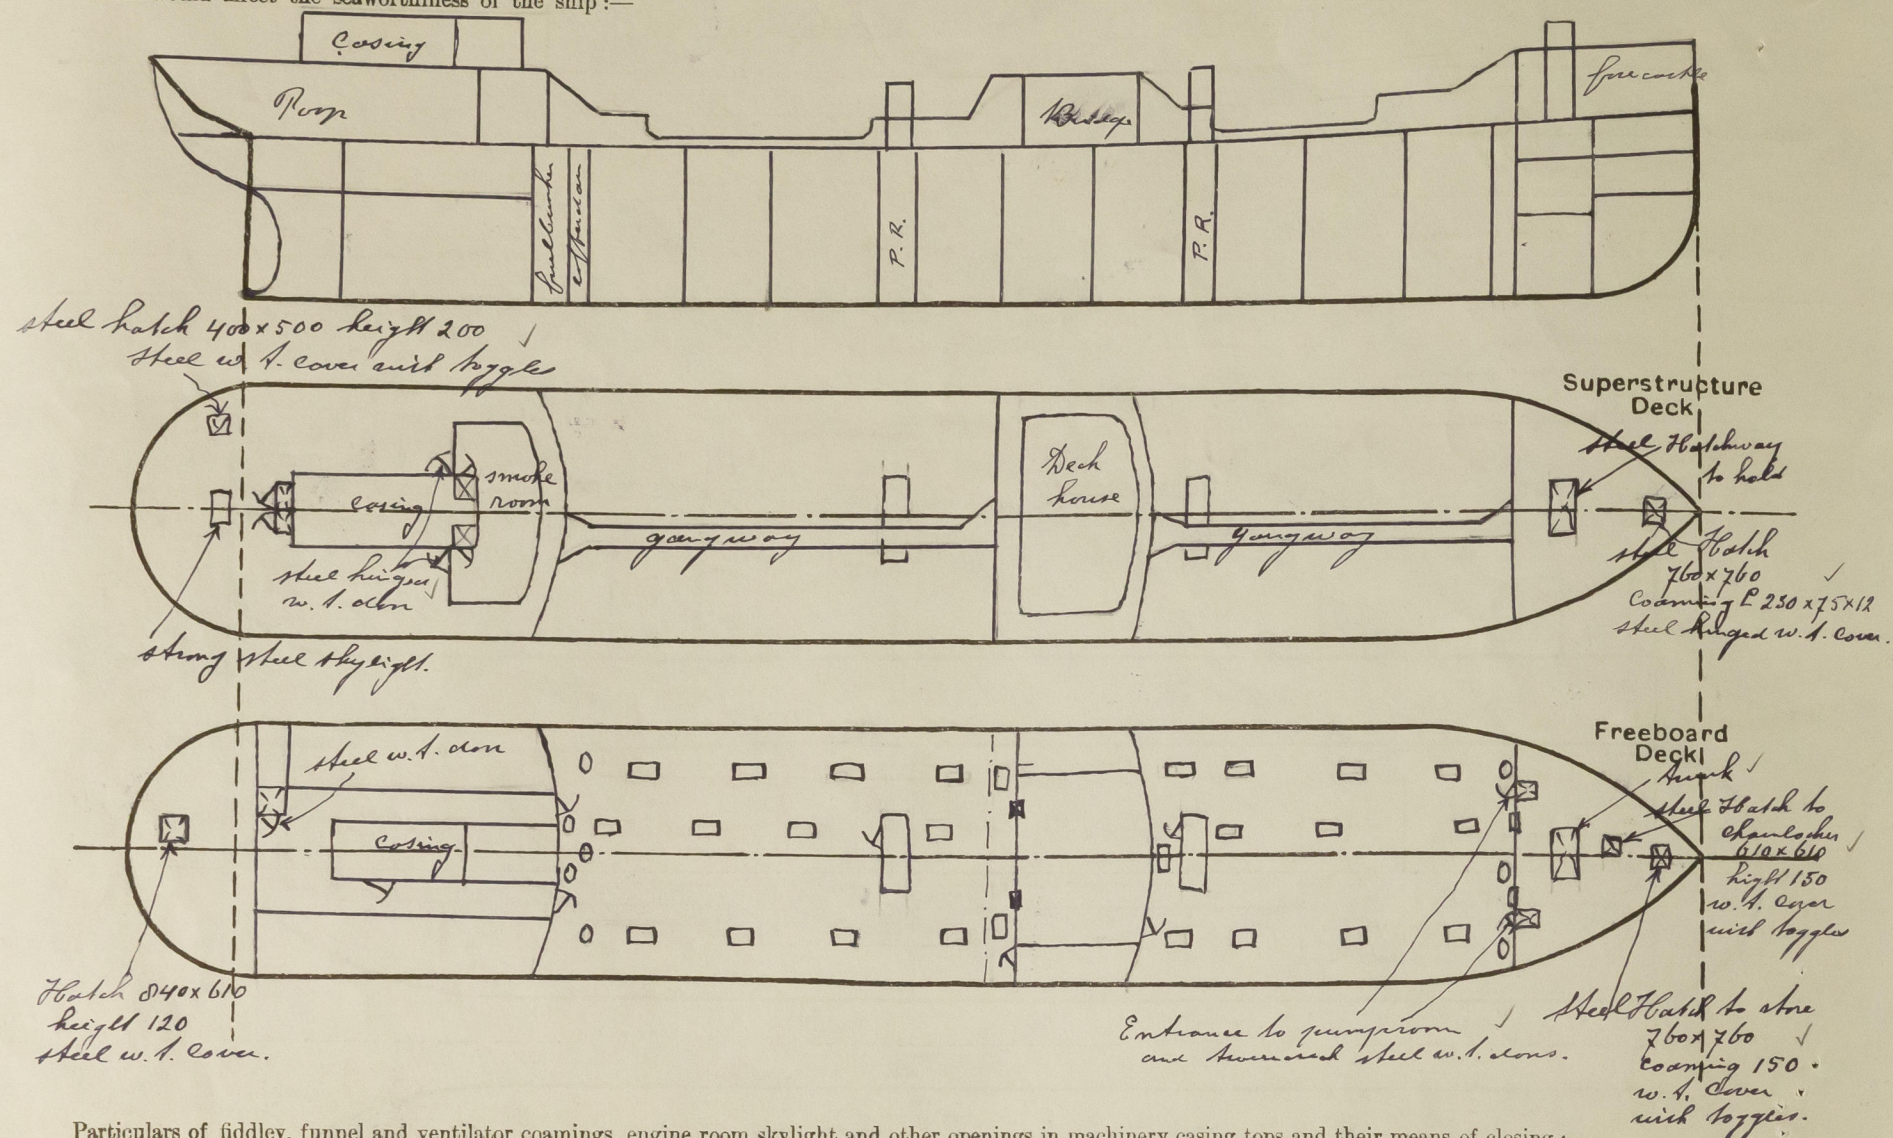 the seaworthiness of the ship:—
Casing
Poop
Bridge
forecastle
fuelbunker
cofferdam
P.R.
P.R.
steel hatch 400x500 height 200
steel w.t. cover with toggles
Superstructure
Deck
steel Hatchway
to hold
smoke
room
casing
Deck
house
gangway
gangway
steel hinged
w.t. door
steel Hatch
760x760
coaming L 230x75x12
steel hinged w.t. cover.
strong steel skylight.
Freeboard
Deck
steel w.t. door
steel Hatch to
chainlocker
610x610
hight 150
w.t. cover
with toggles
casing
Hatch 840x610
height 120
steel w.t. cover.
Entrance to pumproom
and steel w.t. doors.
Steel Hatch to store
760x760
coaming 150.
w.t. Cover
with toggles.
Particulars of fiddley, funnel and ventilator coamings, engine room skylight and other openings in machinery casing tops and their means of closing: